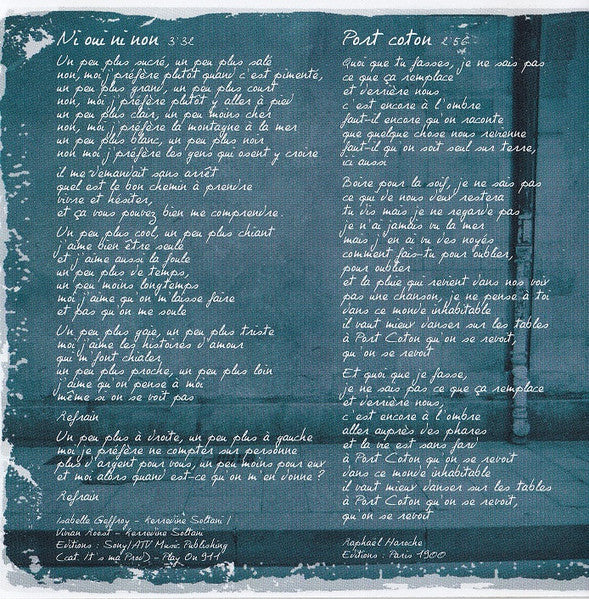 Ni oui ni non 3'32
Un peu plus sucré, un peu plus salé
non, moi j'préfère plutôt quand c'est pimenté,
un peu plus grand, un peu plus court
non, moi j'préfère plutôt y aller à pied
un peu plus clair, un peu moins cher
non, moi j'préfère la montagne à la mer
un peu plus blanc, un peu plus noir
non moi j'préfère les gens qui osent y croire
il me d'mandait sans arrêt
quel est le bon chemin à prendre
vivre et hésiter,
et ça vous pouvez bien me comprendre
Un peu plus cool, un peu plus chiant
j'aime bien être seule
et j'aime aussi la foule
un peu plus de temps,
un peu moins longtemps
moi j'aime qu'on m'laisse faire
et pas qu'on me soule
Un peu plus gaie, un peu plus triste
moi j'aime les histoires d'amour
qui m'font chialer,
un peu plus proche, un peu plus loin
j'aime qu'on pense à moi
même si on se voit pas
Refrain
Un peu plus à droite, un peu plus à gauche
moi je préfère ne compter sur personne
plus d'argent pour vous, un peu moins pour eux
et moi alors quand est-ce qu'on m'en donne ?
Refrain
Isabelle Geffroy - Kerredine Soltani /
Vivian Roost - Kerredine Soltani
Editions : Sony/ATV Music Publishing
(cat. It's ma Prod) - Play On 911
Port coton 2'56
Quoi que tu fasses, je ne sais pas
ce que ça remplace
et derrière nous
c'est encore à l'ombre
faut-il encore qu'on raconte
que quelque chose nous revienne
faut-il qu'on soit seul sur terre,
ici aussi
Boire pour la soif, je ne sais pas
ce qui de nous deux restera
tu dis mais je ne regarde pas
je n'ai jamais vu la mer
mais j'en ai vu des noyés
comment fais-tu pour oublier,
pour oublier
et la pluie qui revient dans nos voix
pas une chanson, je ne pense à toi
dans ce monde inhabitable
il vaut mieux danser sur les tables
à Port Coton qu'on se revoit,
qu'on se revoit
Et quoi que je fasse,
je ne sais pas ce que ça remplace
et derrière nous,
c'est encore à l'ombre
aller auprès des phares
et la vie est sans fard
à Port Coton qu'on se revoit
dans ce monde inhabitable
il vaut mieux danser sur les tables
à Port Coton qu'on se revoit,
qu'on se revoit
Raphaël Haroche
Editions : Paris 1900